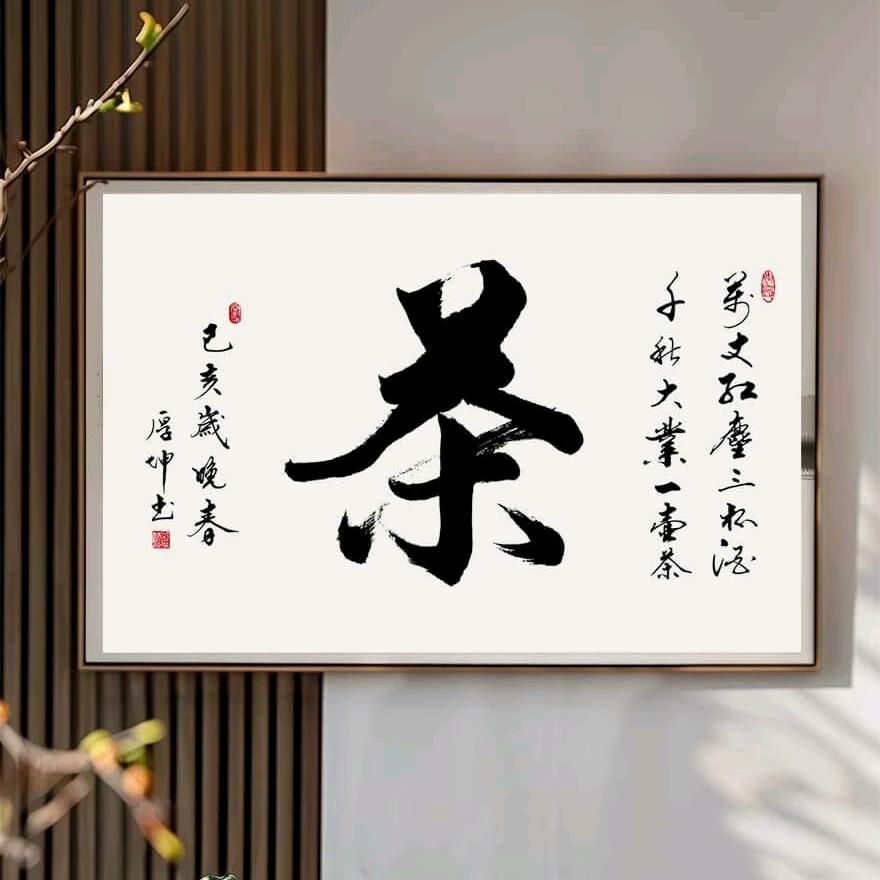 萬丈红塵三杯酒
千秋大業一壺茶
茶
己亥歲晚春
厚坤书